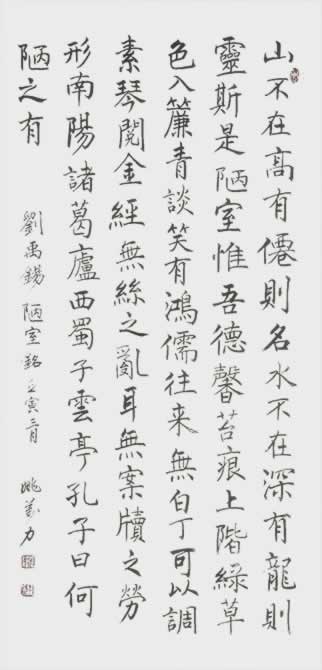 山不在高有僊則名水不在深有龍則
靈斯是陋室惟吾德馨苔痕上階綠草
色入簾青談笑有鴻儒往来無白丁可以調
素琴閱金經無絲之亂耳無案牘之勞
形南陽諸葛廬西蜀子雲亭孔子曰何
陋之有
劉禹錫 陋室銘 壬寅 月 姚 力